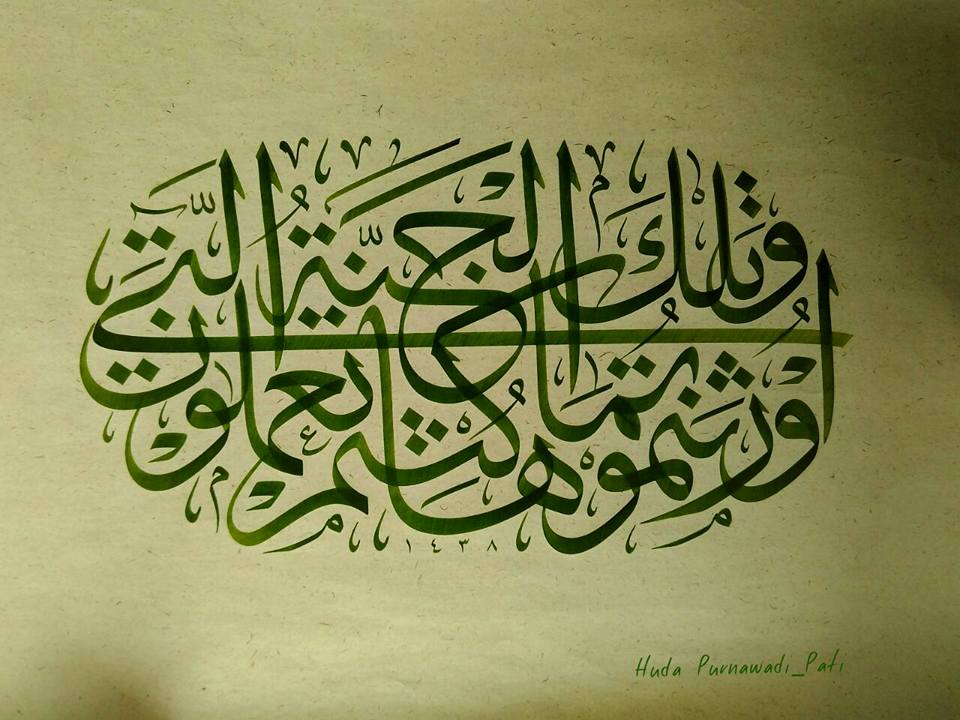 وَتِلْكَ الْجَنَّةُ الَّتِي
أُورِثْتُمُوهَا بِمَا كُنْتُمْ تَعْمَلُونَ
١٤٣٨
Huda Purnawadi_Pati